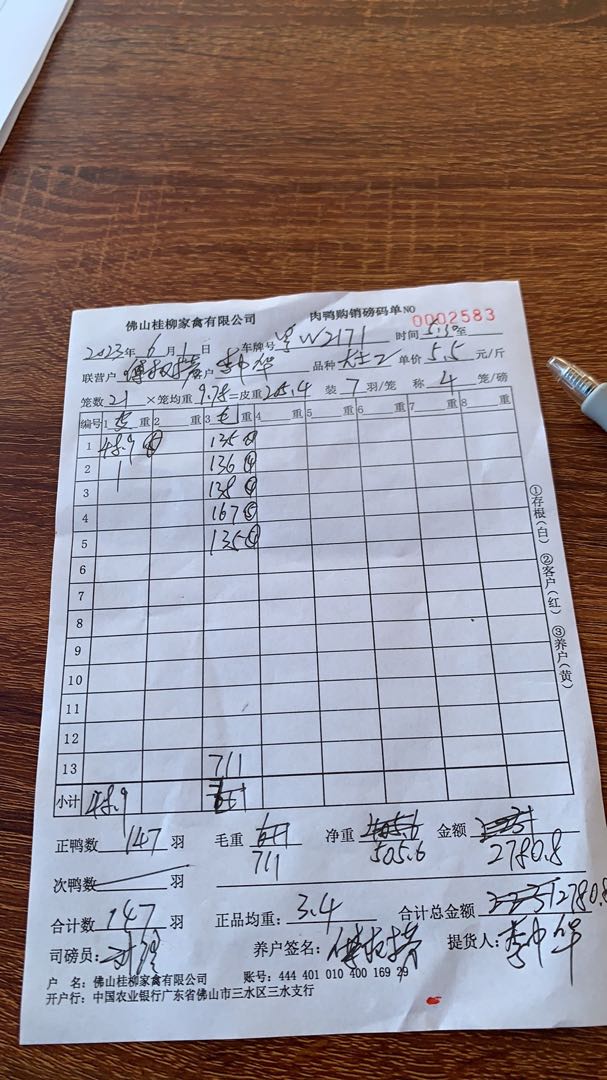 佛山桂柳家禽有限公司 肉鸭购销磅码单NO 0002583
2023年 6月 1日 车牌号 粤W2171 时间 5:30至
联营户 客户 李中华 品种 单价 5.5 元/斤
笼数 21 ×笼均重 9.78=皮重 205.4 装 7 羽/笼 称 4 笼/磅
编号 1 重 2 重 3 毛 重 4 重 5 重 6 重 7 重 8 重
1 48.9 ⑤ 135 ④
2 136 ④
3 138 ④
4 167 ⑤
5 135 ④
6
7
8
9
10
11
12
13 711
小计 48.9
①存根(白) ②客户(红) ③养户(黄)
正鸭数 147 羽 毛重 711 净重 505.6 金额 2780.8
次鸭数 羽
合计数 147 羽 正品均重: 3.4 合计总金额 2780.8
司磅员: 养户签名: 提货人: 李中华
户 名: 佛山桂柳家禽有限公司 账号: 444 401 010 400 169 29
开户行: 中国农业银行广东省佛山市三水区三水支行